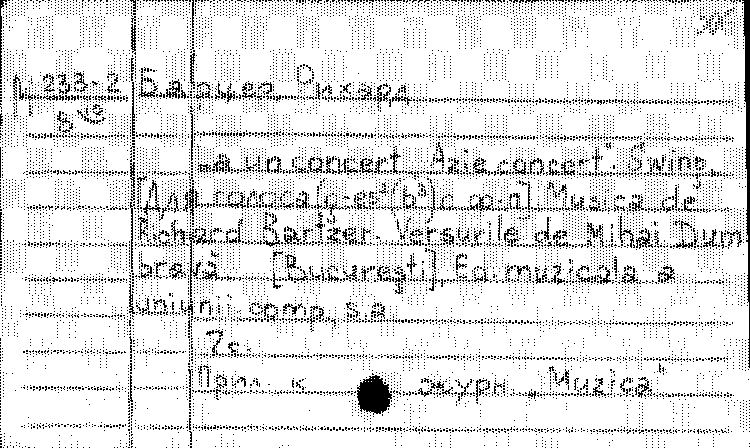 М 233-2 Барцер, Рихард
В
„La un concert. Azie concert". Swing.
[Для голоса (c¹-es²(b³) с ф-п]. Musica de
Richard Bartzer. Versurile de Mihai Dum
bravă. [Bucureşti], Ed. muzicala a
uniunii comp., s.a.
7 с.
Прил. к журн. „Muzica"